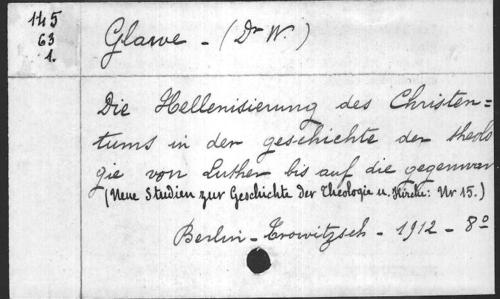 145
63
1.
Glawe - (Dr W.)
Die Hellenisierung des Christen=
tums in der geschichte der theolo
gie von Luther bis auf die gegenwar
(Neue Studien zur Geschichte der Theologie u. Kirche: Nr 15.)
Berlin - Trowitzsch - 1912 - 8º